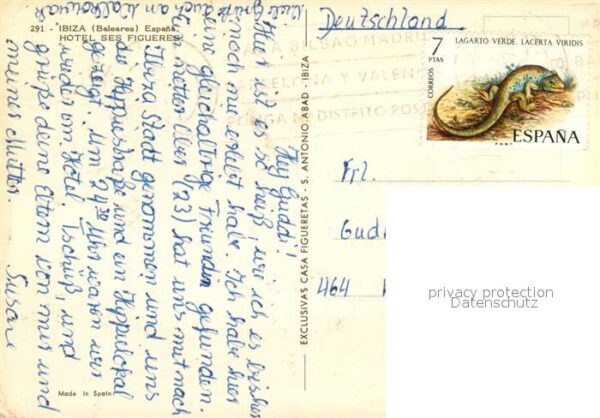 291 - IBIZA (Baleares) España
HOTEL SES FIGUERES
Viele Grüße
auch an
Hey Guddi!
Hier ist es so heiß, wie ich es bisher
noch nie erlebt habe. Ich habe hier
eine gleichaltrige Freundin gefunden.
Ihr netter (23) hat uns mit nach
Ibiza Stadt genommen und uns
die Hippiestraße und ein Hippilokal
gezeigt. Um 24 30 Uhr waren wir
wieder im Hotel. Tschüß, und
grüße deine Eltern von mir und
meines Mutter. Susan
Made in Spain
EXCLUSIVAS CASA FIGUERETAS - S. ANTONIO ABAD - IBIZA
Deutschland
BILBAO MADRID
BARCELONA Y VALENCIA
PONGA Nº DISTRITO POSTAL
7
PTAS
CORREOS
LAGARTO VERDE. LACERTA VIRIDIS
ESPAÑA
F.N.M.T.
Frl.
Gud
464
privacy protection
Datenschutz